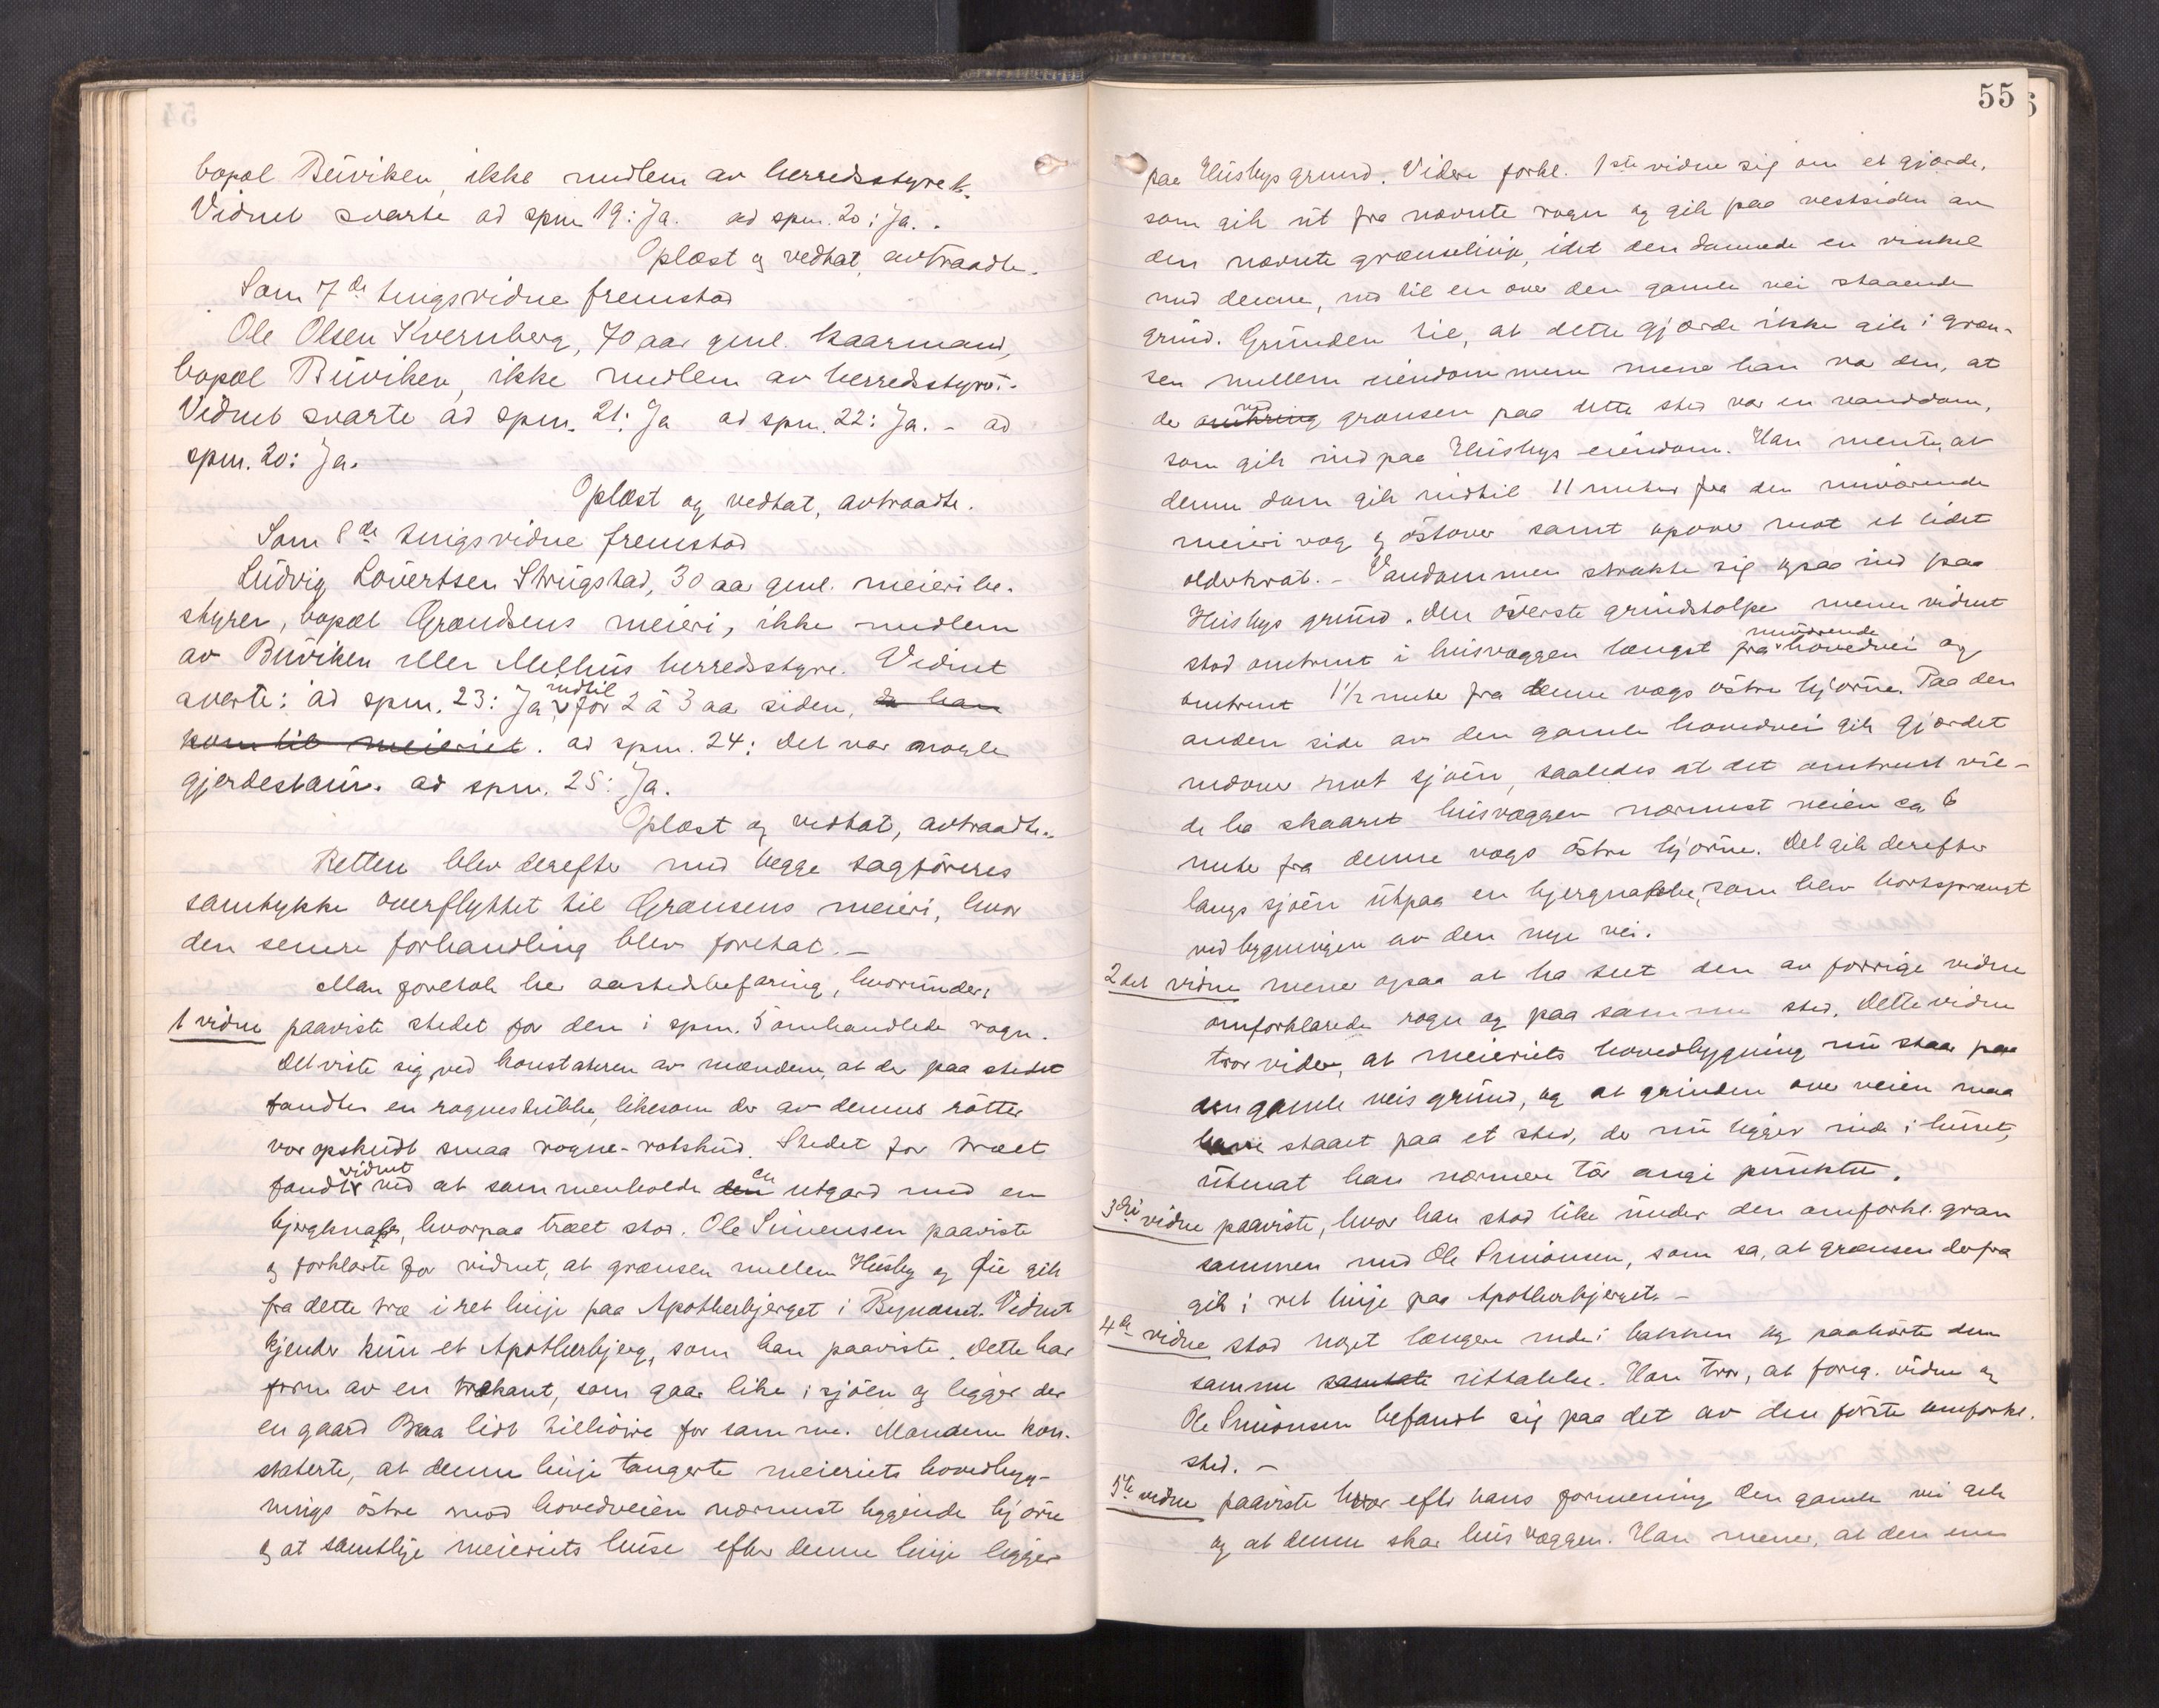 bopæl Büviken, ikke medlem av herredsstyret.
Vidnet svarte ad spm 19: Ja. ad spm. 20: Ja..
Oplæst og vedtat, avtraadte.
Som 7de tingsvidne fremstod
Ole Olsen Kvernberg, 70 aar gml. kaarmand,
bopæl Büviken, ikke medlem av herredsstyret.
Vidnet svarte ad spm. 21: Ja ad spm. 22: Ja. - ad
spm. 20: Ja.
Oplæst og vedtat, avtraadte.
Som 8de tingsvidne fremstod
Ludvig Lovertsen Strugstad, 30 aar gml. meieribe-
styrer, bopæl Grændsens meieri, ikke medlem
av Büviken eller Melhus herredsstyre. Vidnet
svarte: ad spm. 23: Ja indtil for 2 à 3 aar siden, da han
kom til meieriet. ad spm. 24: Det var nogle
gjerdestaur. ad spm. 25: Ja.
Oplæst og vedtat, avtraadte.
Retten blev derefter med begge sagföreres
samtykke overflyttet til Grænsens meieri, hvor
den senere forhandling blev foretat. -
Man foretok her aastedsbefaring, hvorunder:
1 vidne paaviste stedet for den i spm. 5 omhandlede rogn.
Det viste sig ved konstateren av mændene, at der paa stedet
fandtes en rognestubbe, likesom der av dennes rötter
var opskudt smaa rogne-rotskud. Stedet for træet
fandt vidnet ved at sammenholde den en utgard med en
bjergknabe, hvorpaa træet stod. Ole Simensen paaviste
og forklarte for vidnet, at grænsen mellem Husby og Öie gik
fra dette træ i ret linje paa Apothekerbjerget i Bynæset. Vidnet
kjender kun et Apothekerbjerg, som han paaviste. Dette har
form av en trekant, som gaar like i sjöen og ligger der
en gaard Braa lidt tilhöire for samme. Mændene kon-
staterte, at denne linje tangerte meieriets hovedbyg-
nings östre mod hovedveien nærmest liggende hjörne
og at samtlige meieriets huse efter denne linje ligger
55
paa Husbys grund. Videre forkl. 1ste vidne sig om et gjærde,
som gik ut fra nævnte rogn og gik paa vestsiden av
den nævnte grænselinje, idet den dannede en vinkel
med denne, ned til en over den gamle vei staaende
grind. Grunden til, at dette gjærde ikke gik i græn-
sen mellem eiendommene mener han var den, at
der omkring ved grænsen paa dette sted var en vanddam,
som gik ind paa Husbys eiendom. Han mente, at
denne dam gik indtil 11 meter fra den nuværende
meieri væg og östover samt opover mot et lidet
olderkrat. - Vanddammen strakte sig ogsaa ind paa
Husbys grund. Den överste grindstolpe mener vidnet
stod omtrent i husvæggen længst fra nuværende hovedvei og
omtrent 1½ meter fra denne vægs östre hjörne. Paa den
anden side av den gamle hovedvei gik gjærdet
nedover mot sjöen, saaledes at det omtrent vil-
de ha skaaret husvæggen nærmest veien ca 6
meter fra denne vægs östre hjörne. Det gik derefter
langs sjöen utpaa en bjergnabbe, som blev bortsprængt
ved bygningen av den nye vei.
2det vidne mener ogsaa at ha seet den av forrige vidne
omforklarede rogn og paa samme sted. Dette vidne
tror videre, at meieriets hovedbygning nu staar paa
den gamle veis grund, og at grinden over veien maa
have staaet paa et sted, der nu ligger inde i huset,
utenat han nærmere tör angi punktet.
3die vidne paaviste, hvor han stod like under den omforkl. gran
sammen med Ole Simonsen, som sa, at grænsen derfra
gik i ret linje paa Apothekerbjerget. -
4de vidne stod noget længere nede i bakken og paahörte den
samme samtale uttalelse. Han tror, at foreg. vidne og
Ole Simonsen befandt sig paa det av den förste omforkl.
sted. -
5te vidne paaviste hvor efter hans formening den gamle vei gik
og at denne skar husvæggen. Han mener, at den ene